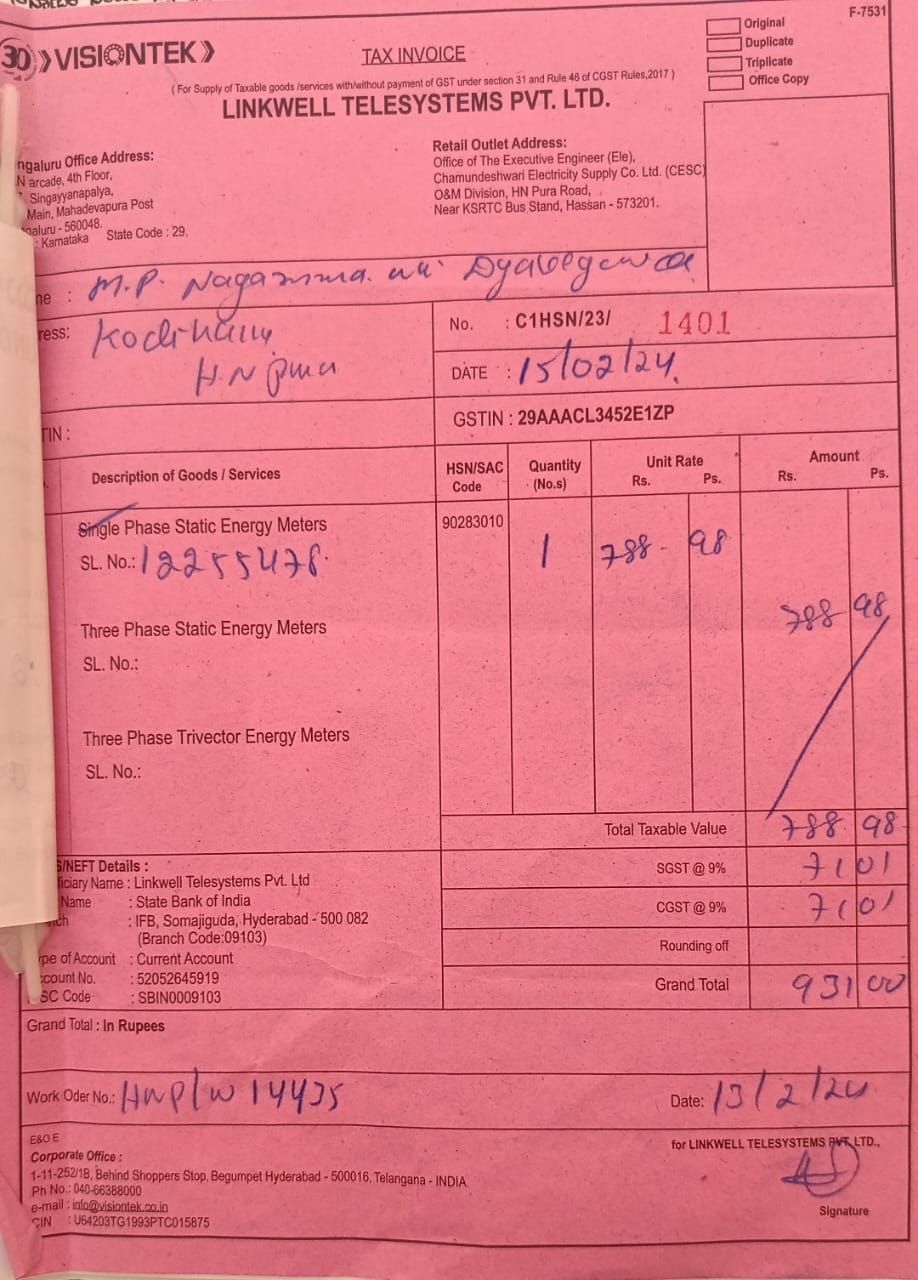 F-7531
Original
Duplicate
Triplicate
Office Copy
3D VISIONTEK
TAX INVOICE
( For Supply of Taxable goods /services with/without payment of GST under section 31 and Rule 46 of CGST Rules,2017 )
LINKWELL TELESYSTEMS PVT. LTD.
ngaluru Office Address:
N arcade, 4th Floor,
Singayyanapalya,
Main, Mahadevapura Post
galuru - 560048.
: Karnataka State Code : 29.
Retail Outlet Address:
Office of The Executive Engineer (Ele),
Chamundeshwari Electricity Supply Co. Ltd. (CESC)
O&M Division, HN Pura Road,
Near KSRTC Bus Stand, Hassan - 573201.
me : M.P. Nagamma
ress:
H.N pura
No. : C1HSN/23/ 1401
DATE : 15/02/24
TIN :
GSTIN : 29AAACL3452E1ZP
Description of Goods / Services
HSN/SAC Code
Quantity (No.s)
Unit Rate Rs. Ps.
Amount Rs. Ps.
Single Phase Static Energy Meters 90283010 1 788 - 98
SL. No.: 12255478
788 98
Three Phase Static Energy Meters
SL. No.:
Three Phase Trivector Energy Meters
SL. No.:
Total Taxable Value 788 98
SGST @ 9% 71 01
CGST @ 9% 71 01
Rounding off
Grand Total 931 00
S/NEFT Details :
ficiary Name : Linkwell Telesystems Pvt. Ltd
Name : State Bank of India
nch : IFB, Somajiguda, Hyderabad - 500 082
(Branch Code:09103)
pe of Account : Current Account
count No. : 52052645919
SC Code : SBIN0009103
Grand Total : In Rupees
Work Oder No.: HNP/W 14435
Date: 13/2/24
E&O E
Corporate Office :
1-11-252/1B, Behind Shoppers Stop, Begumpet Hyderabad - 500016, Telangana - INDIA
Ph No.: 040-66388000
e-mail : info@visiontek.co.in
CIN : U64203TG1993PTC015875
for LINKWELL TELESYSTEMS PVT. LTD.,
Signature